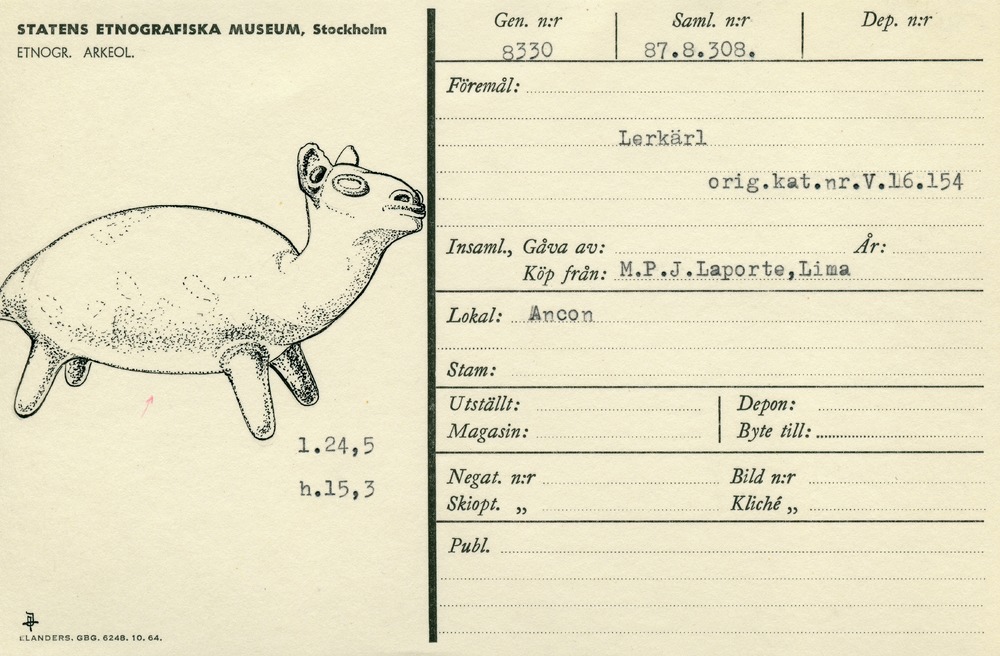 STATENS ETNOGRAFISKA MUSEUM, Stockholm
ETNOGR. ARKEOL.
l.24,5
h.15,3
ELANDERS. GBG. 6248. 10. 64.
Gen. n:r Saml. n:r Dep. n:r
8330 87.8.308.
Föremål:
Lerkärl
orig.kat.nr.V.16.154
Insaml., Gåva av: År:
Köp från: M.P.J.Laporte,Lima
Lokal: Ancon
Stam:
Utställt: Depon:
Magasin: Byte till:
Negat. n:r Bild n:r
Skiopt. „ Kliché „
Publ.